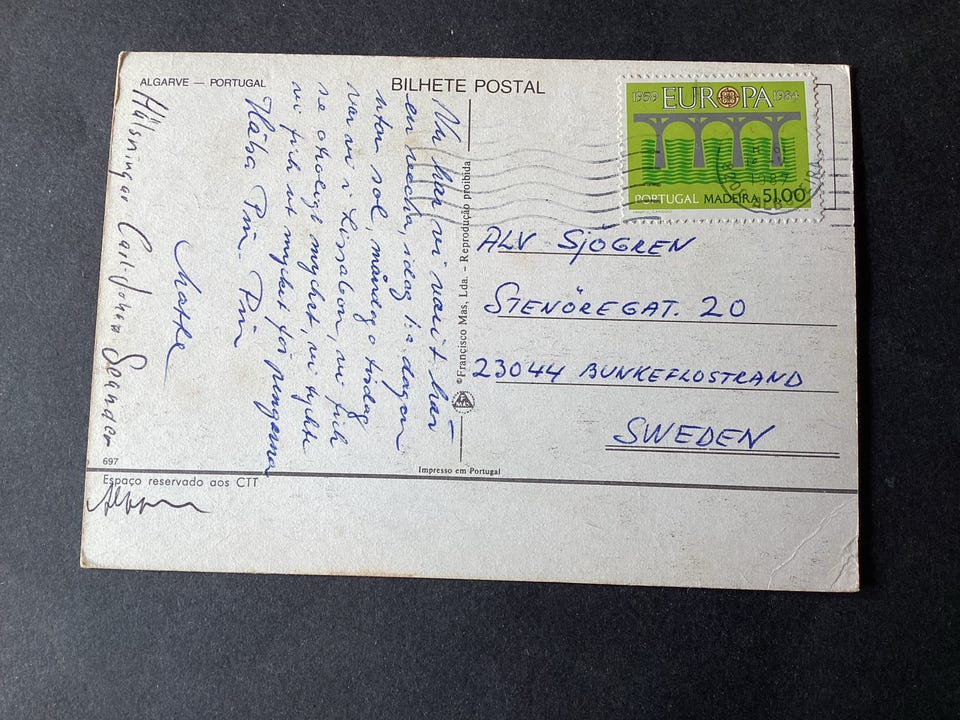 ALGARVE — PORTUGAL
BILHETE POSTAL
1959 EUROPA 1984
PORTUGAL MADEIRA 51.00
Nu har vi varit här
en vecka, idag 1:a dagen
utan sol, måndag o tisdag
var vi i Lissabon, vi fick
se otroligt mycket, vi tyckte
vi fick ut mycket för pengarna
Pin - Pin
Hälsningar Carl Johan
©Francisco Mas, Lda. – Reprodução proibida
ALV SJÖGREN
STENÖREGAT. 20
23044 BUNKEFLOSTRAND
SWEDEN
697
Impresso em Portugal
Espaço reservado aos CTT